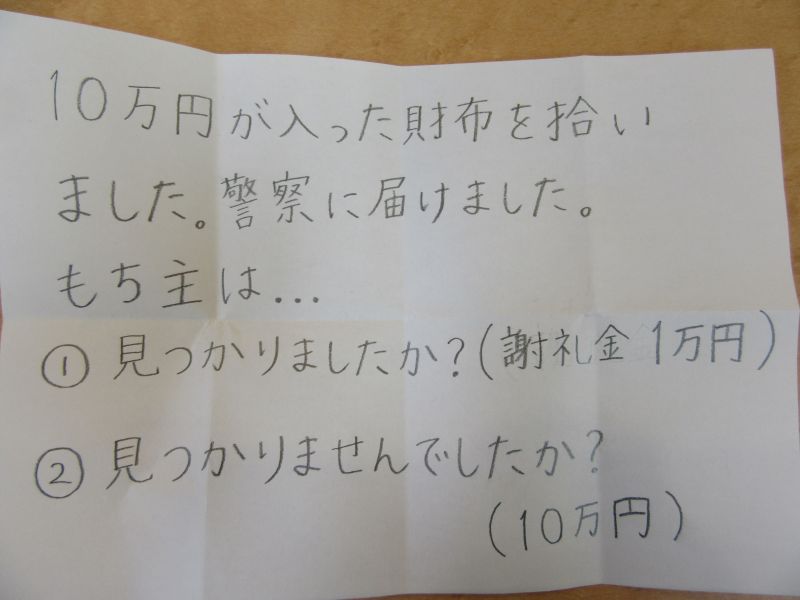 10万円が入った財布を拾い
ました。警察に届けました。
もち主は...
① 見つかりましたか?(謝礼金 1万円)
② 見つかりませんでしたか?
(10万円)